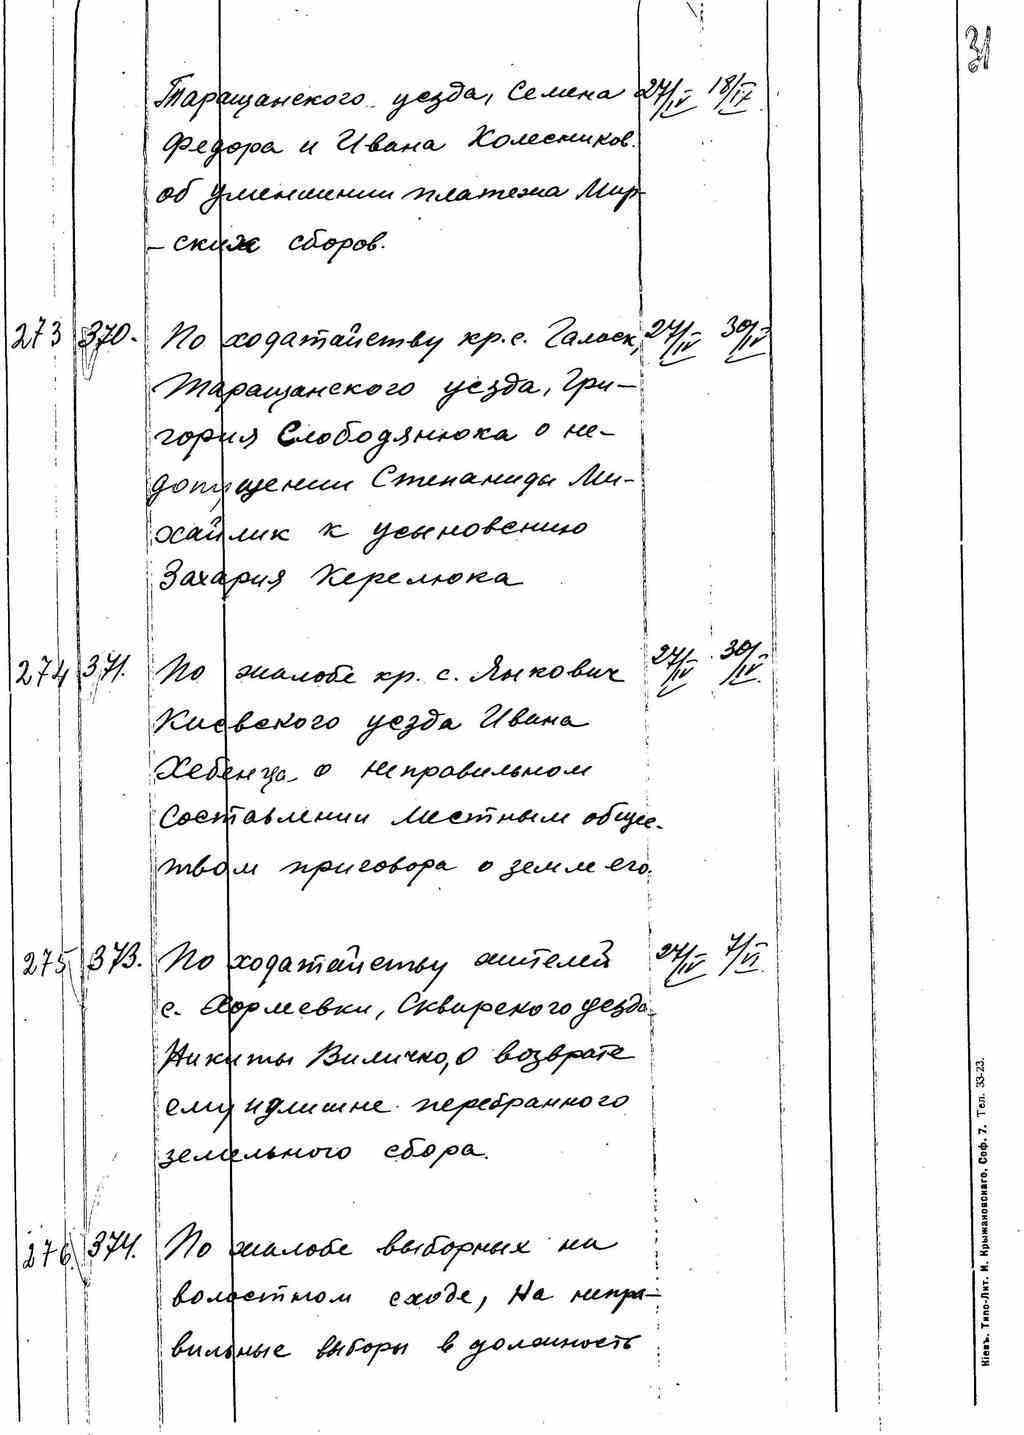 31
Таращанского уезда, Семена 27/IV 18/IX
Федора и Ивана Колесников.
об уменшении платежа Мир-
- ских сборов.
273 370. По ходатайству кр. с. Галаск, 27/IV 30/IV
Таращанского уезда, Гри-
гория Слободянюка о не-
допущении Степаниды Ми-
хайлик к усыновению
Захария Керелюка
274 371. По жалобе кр. с. Янкович 27/IV 30/IV
Киевского уезда Ивана
Хебенца о неправильном
составлении местным общес-
твом приговора о земле его.
275 373. По ходатайству жителей 27/IV 7/VI
с. Хормевки, Сквирского уезда
Никиты Виличко, о возврате
ему излишне перебранного
земельного сбора.
276. 374. По жалобе выборных на
волостном сходе, на непра-
вильные выборы в должность
Кіевъ. Типо-Лит. И. Крыжановскаго, Соф. 7. Тел. 33-23.